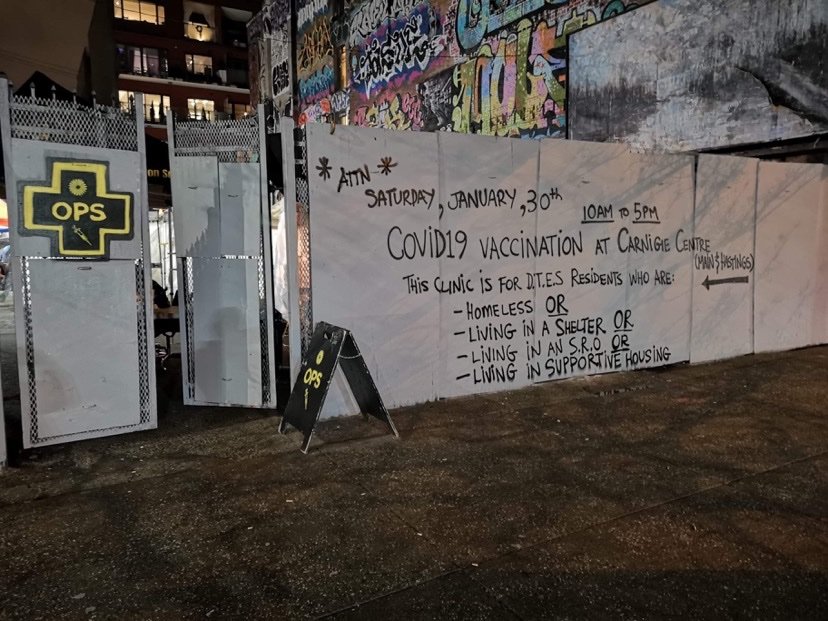 OPS
OPS
*ATTN*
SATURDAY, JANUARY, 30th 10AM TO 5PM
COVID19 VACCINATION AT CARNIGIE CENTRE
(MAIN & HASTINGS)
THIS CLINIC IS FOR D.T.E.S RESIDENTS WHO ARE:
- HOMELESS OR
- LIVING IN A SHELTER OR
- LIVING IN AN S.R.O OR
- LIVING IN SUPPORTIVE HOUSING